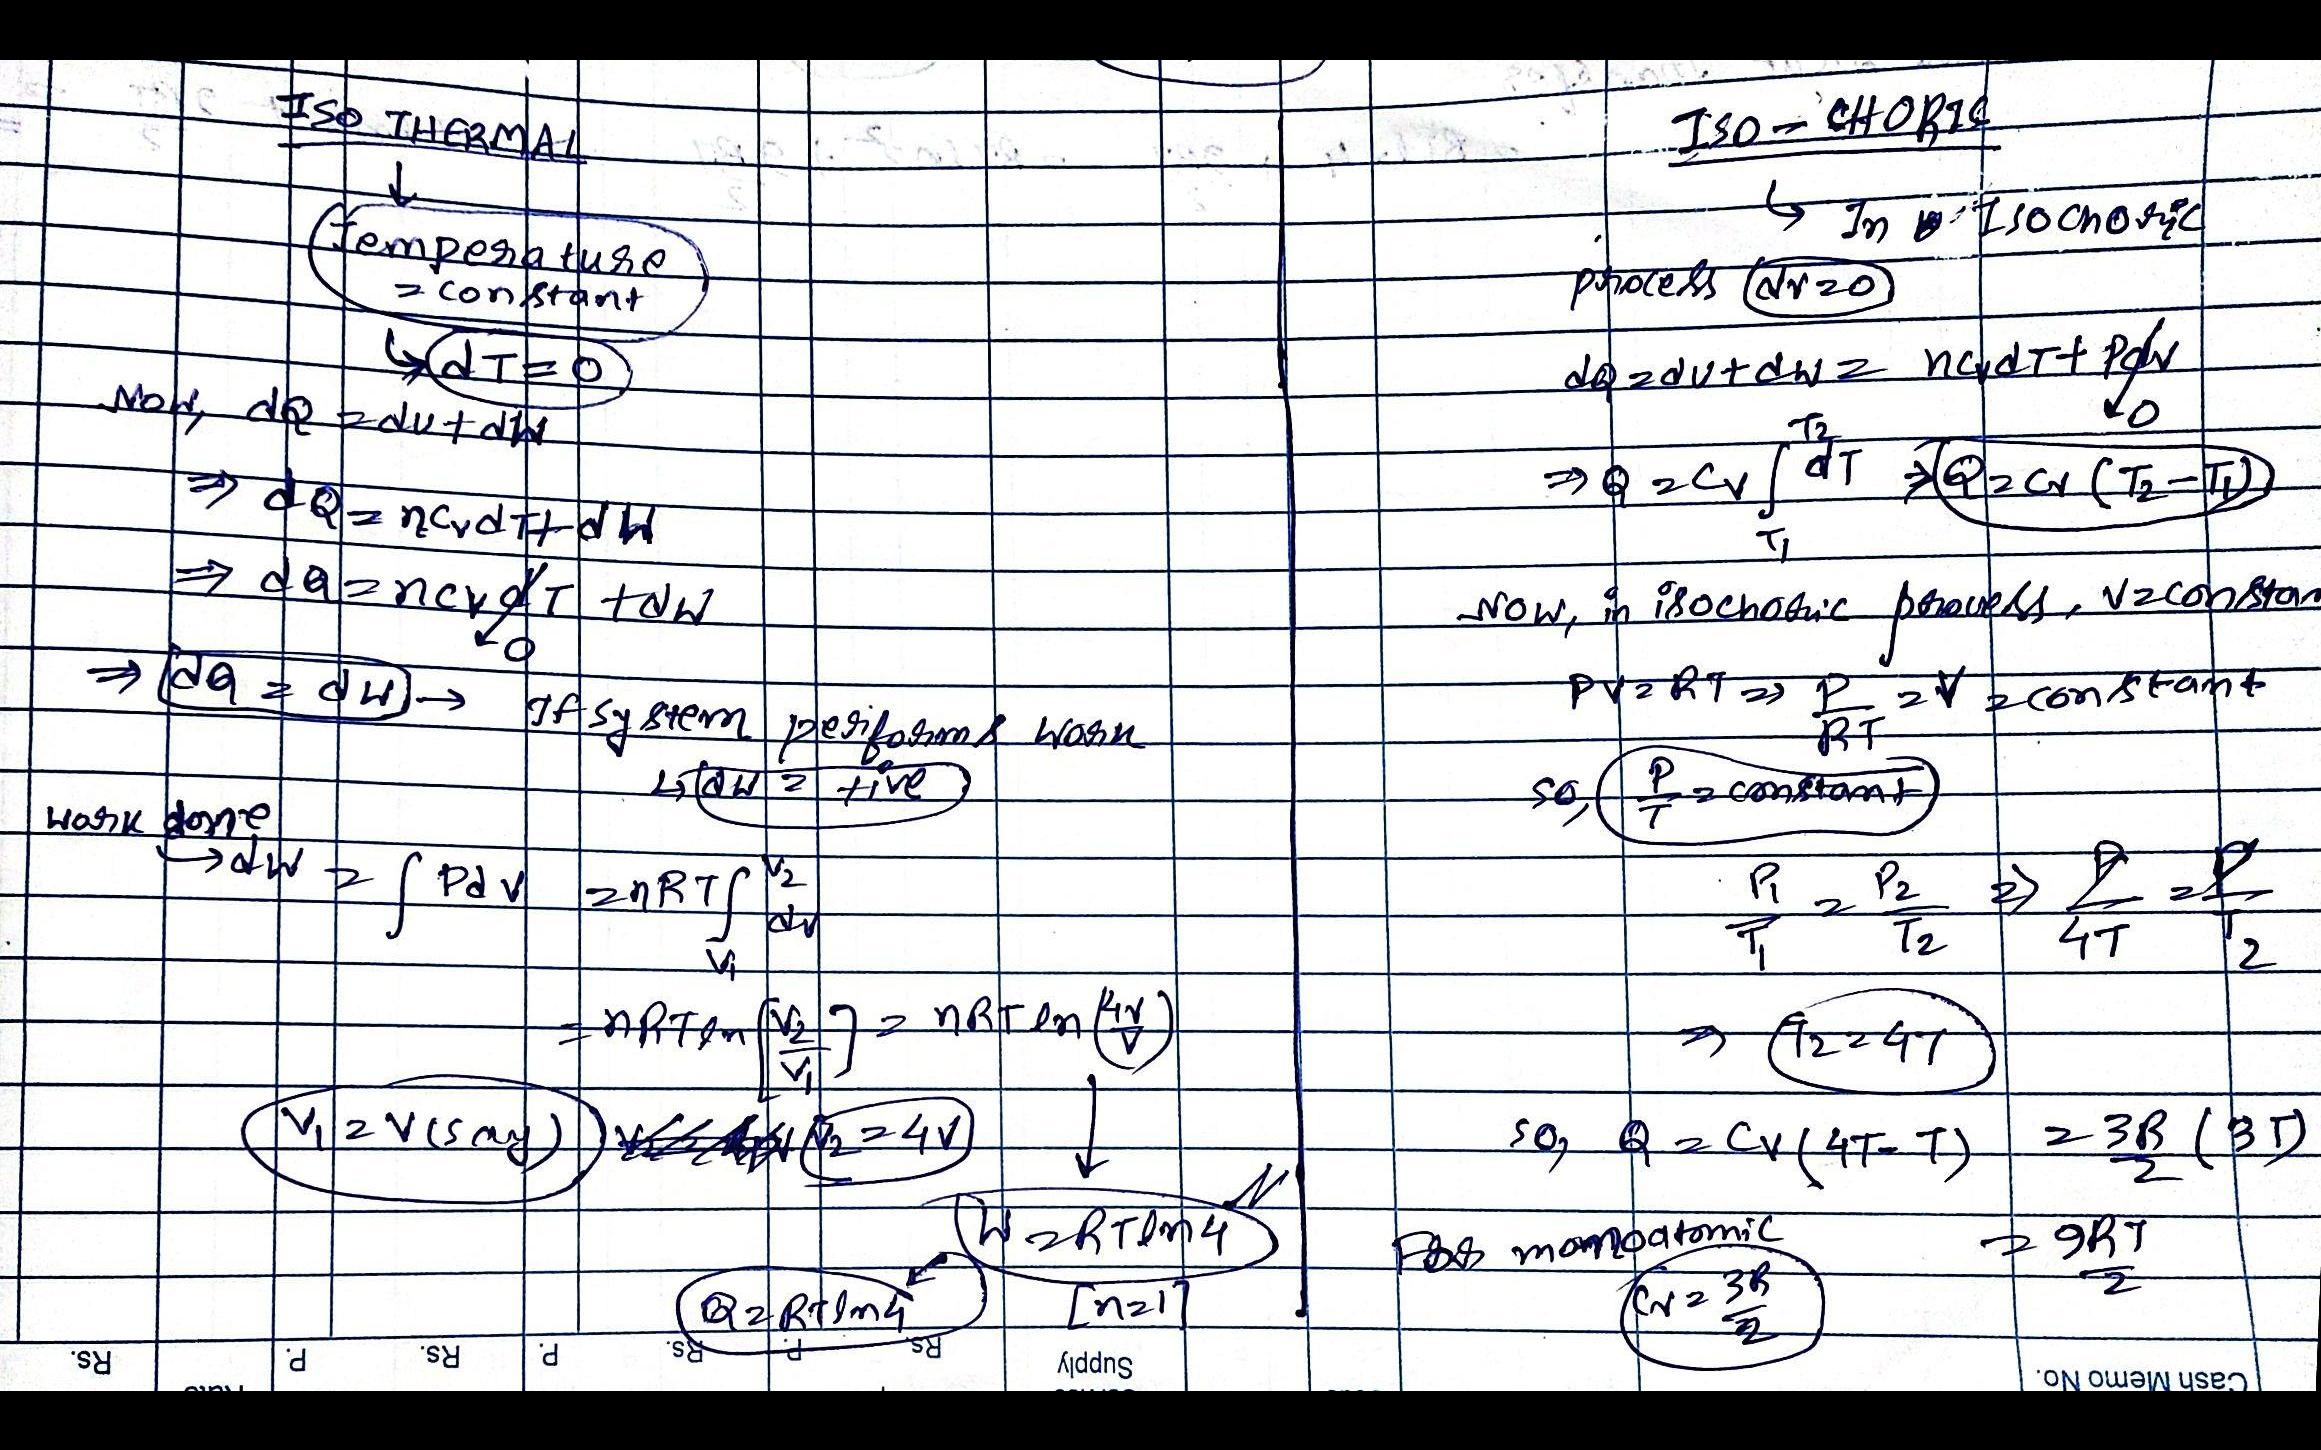 ISO THERMAL
↓
Temperature
= constant
↳ dT = 0
Now, dQ = du + dW
⇒ dQ = nCvdT + dW
⇒ dQ = nCvdT + dW
↙0
⇒ dQ = dW → If system performs work
↳ dW = +ive
work done
→ dW = ∫ PdV = nRT ∫ V2 V1 dv
= nRT ln [V2/V1] = nRT ln (4V/V)
V1 = V (say) V2 = 4V
W = RT ln 4
Q = RT ln 4 [n=1]
ISO - CHORIC
↳ In Isochoric
process dv = 0
dQ = du + dW = nCvdT + Pdv
↙0
⇒ Q = Cv ∫ T2 T1 dT ⇒ Q = Cv (T2 - T1)
Now, in isochoric process, V = constan
PV = RT ⇒ P/RT = V = constant
so, P/T = constant
P1/T1 = P2/T2 ⇒ P/4T = P/T2
⇒ T2 = 4T
so, Q = Cv (4T - T) = 3R/2 (3T)
For monoatomic = 9RT/2
Cv = 3R/2
Rs. P. Rs. P. Rs. P. Rs. Supply
Cash Memo No.